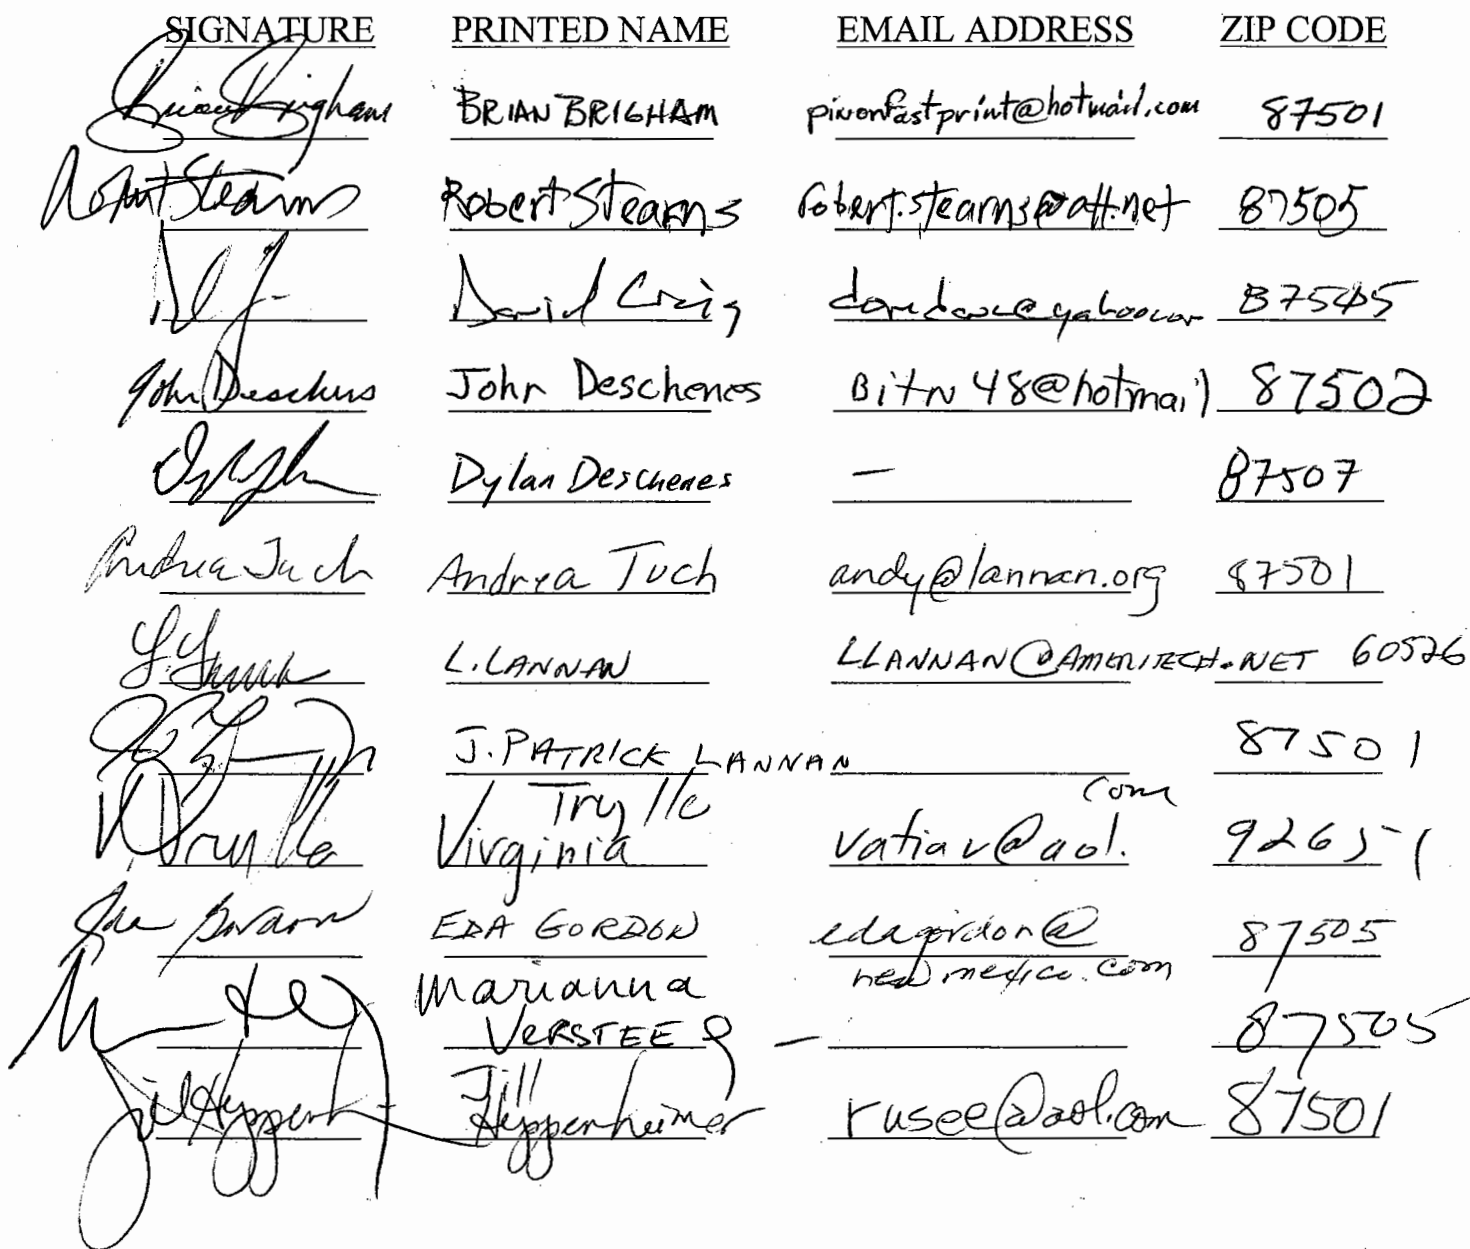 SIGNATURE PRINTED NAME EMAIL ADDRESS ZIP CODE
Brian Brigham BRIAN BRIGHAM pinonfastprint@hotmail.com 87501
Robert Stearns Robert Stearns robert.stearns@att.net 87505
David Craig 87545
John Deschenes John Deschenes Bitn48@hotmail 87502
Dylan Deschenes — 87507
Andrea Tuch Andrea Tuch andy@lannan.org 87501
L. LANNAN LLANNAN@AMERITECH.NET 60526
J. PATRICK LANNAN 87501
Trylle com
V Trylle Virginia vatiav@aol. 92651
Eda Gordon EDA GORDON edagordon@ 87505
newmexico.com
Marianna
VERSTEEG — 87505
Jill
Jill Heppenh Heppenheimer rusee@aol.com 87501